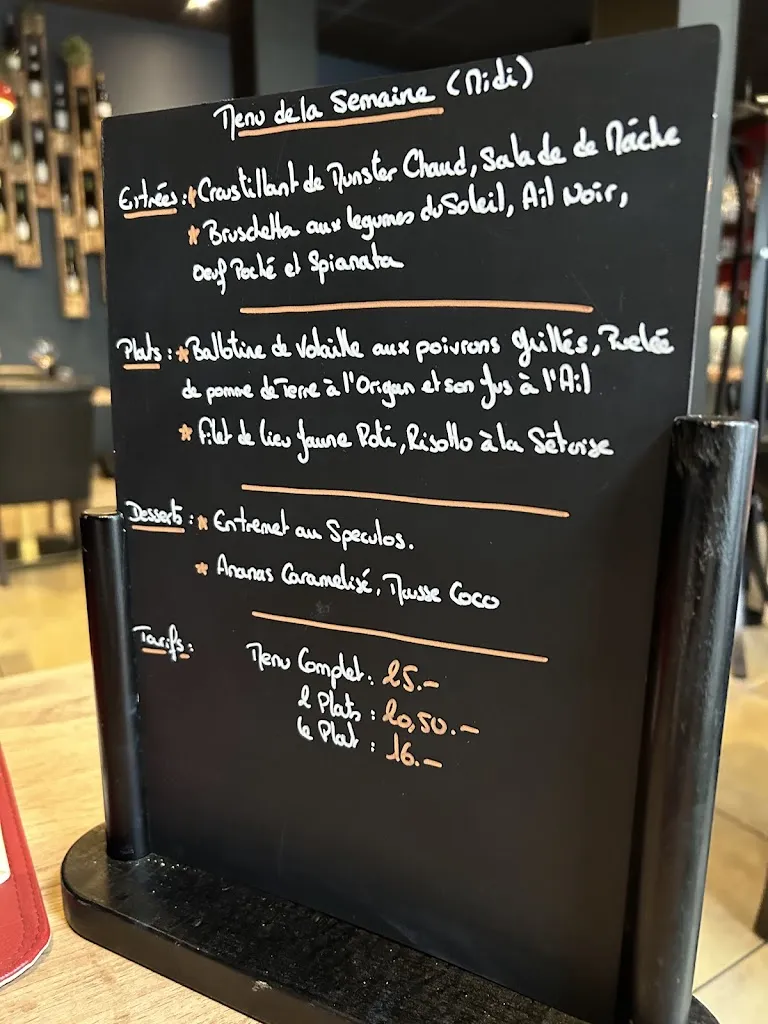 Menu de la Semaine (Midi)
Entrées : * Croustillant de Munster Chaud, Salade de Mâche
* Bruschetta aux legumes du Soleil, Ail Noir,
Oeuf Poché et Spianata
Plats : * Ballotine de Volaille aux poivrons Grillés, Poelée
de pomme de Terre à l'Origan et son Jus à l'Ail
* Filet de Lieu Jaune Roti, Risotto à la Sétoise
Desserts : * Entremet au Speculos.
* Ananas Caramelisé, Mousse Coco
Tarifs :
Menu Complet : 25.-
2 Plats : 20,50.-
le Plat : 16.-